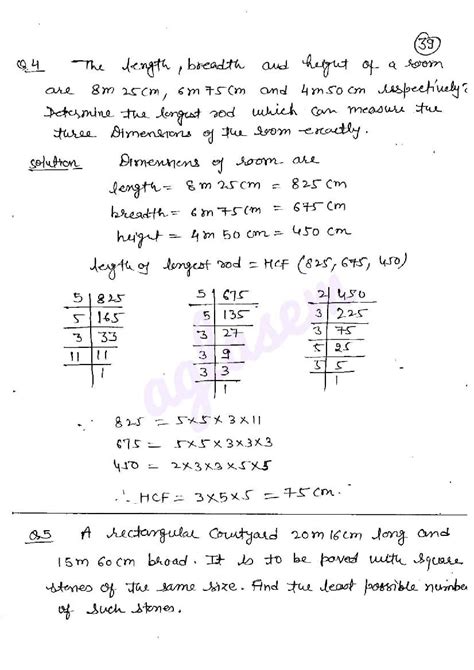 39
Q.4 The length, breadth and height of a room
are 8m 25cm, 6m 75cm and 4m 50cm respectively?
Determine the longest rod which can measure the
three Dimensions of the room exactly.
Solution Dimensions of room are
length = 8m 25cm = 825cm
breadth = 6m 75cm = 675cm
height = 4m 50cm = 450cm
length of longest rod = HCF (825, 675, 450)
5 | 825   5 | 675   2 | 450
5 | 165   5 | 135   3 | 225
3 | 33   3 | 27   3 | 75
11 | 11   3 | 9   5 | 25
| 1   3 | 3   5 | 5
| 1   | 1
∴ 825 = 5×5×3×11
675 = 5×5×3×3×3
450 = 2×3×3×5×5
∴ HCF = 3×5×5 = 75cm.
Q.5 A rectangular Courtyard 20m 16cm long and
15m 60cm broad. It is to be paved with square
stones of the same size. Find the least possible number
of such stones.